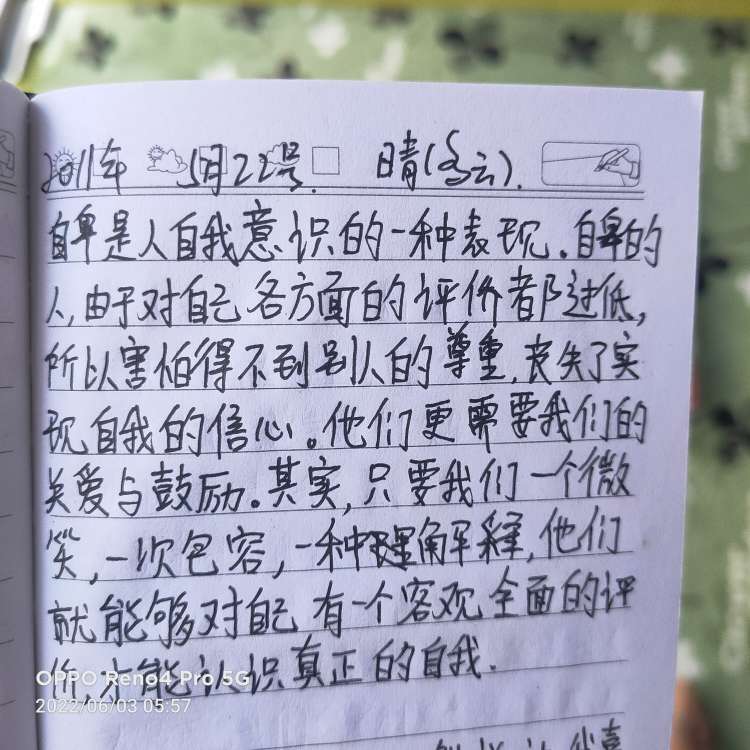 2011年 5月22号. 晴(多云).
自卑是人自我意识的一种表现.自卑的
人,由于对自己各方面的评价都过低,
所以害怕得不到别人的尊重,丧失了实
现自我的信心。他们更需要我们的
关爱与鼓励。其实,只要我们一个微
笑,一次包容,一种理解,他们
就能够对自己有一个客观全面的评
价,才能认识真正的自我.
OPPO Reno4 Pro 5G
2022/06/03 05:57